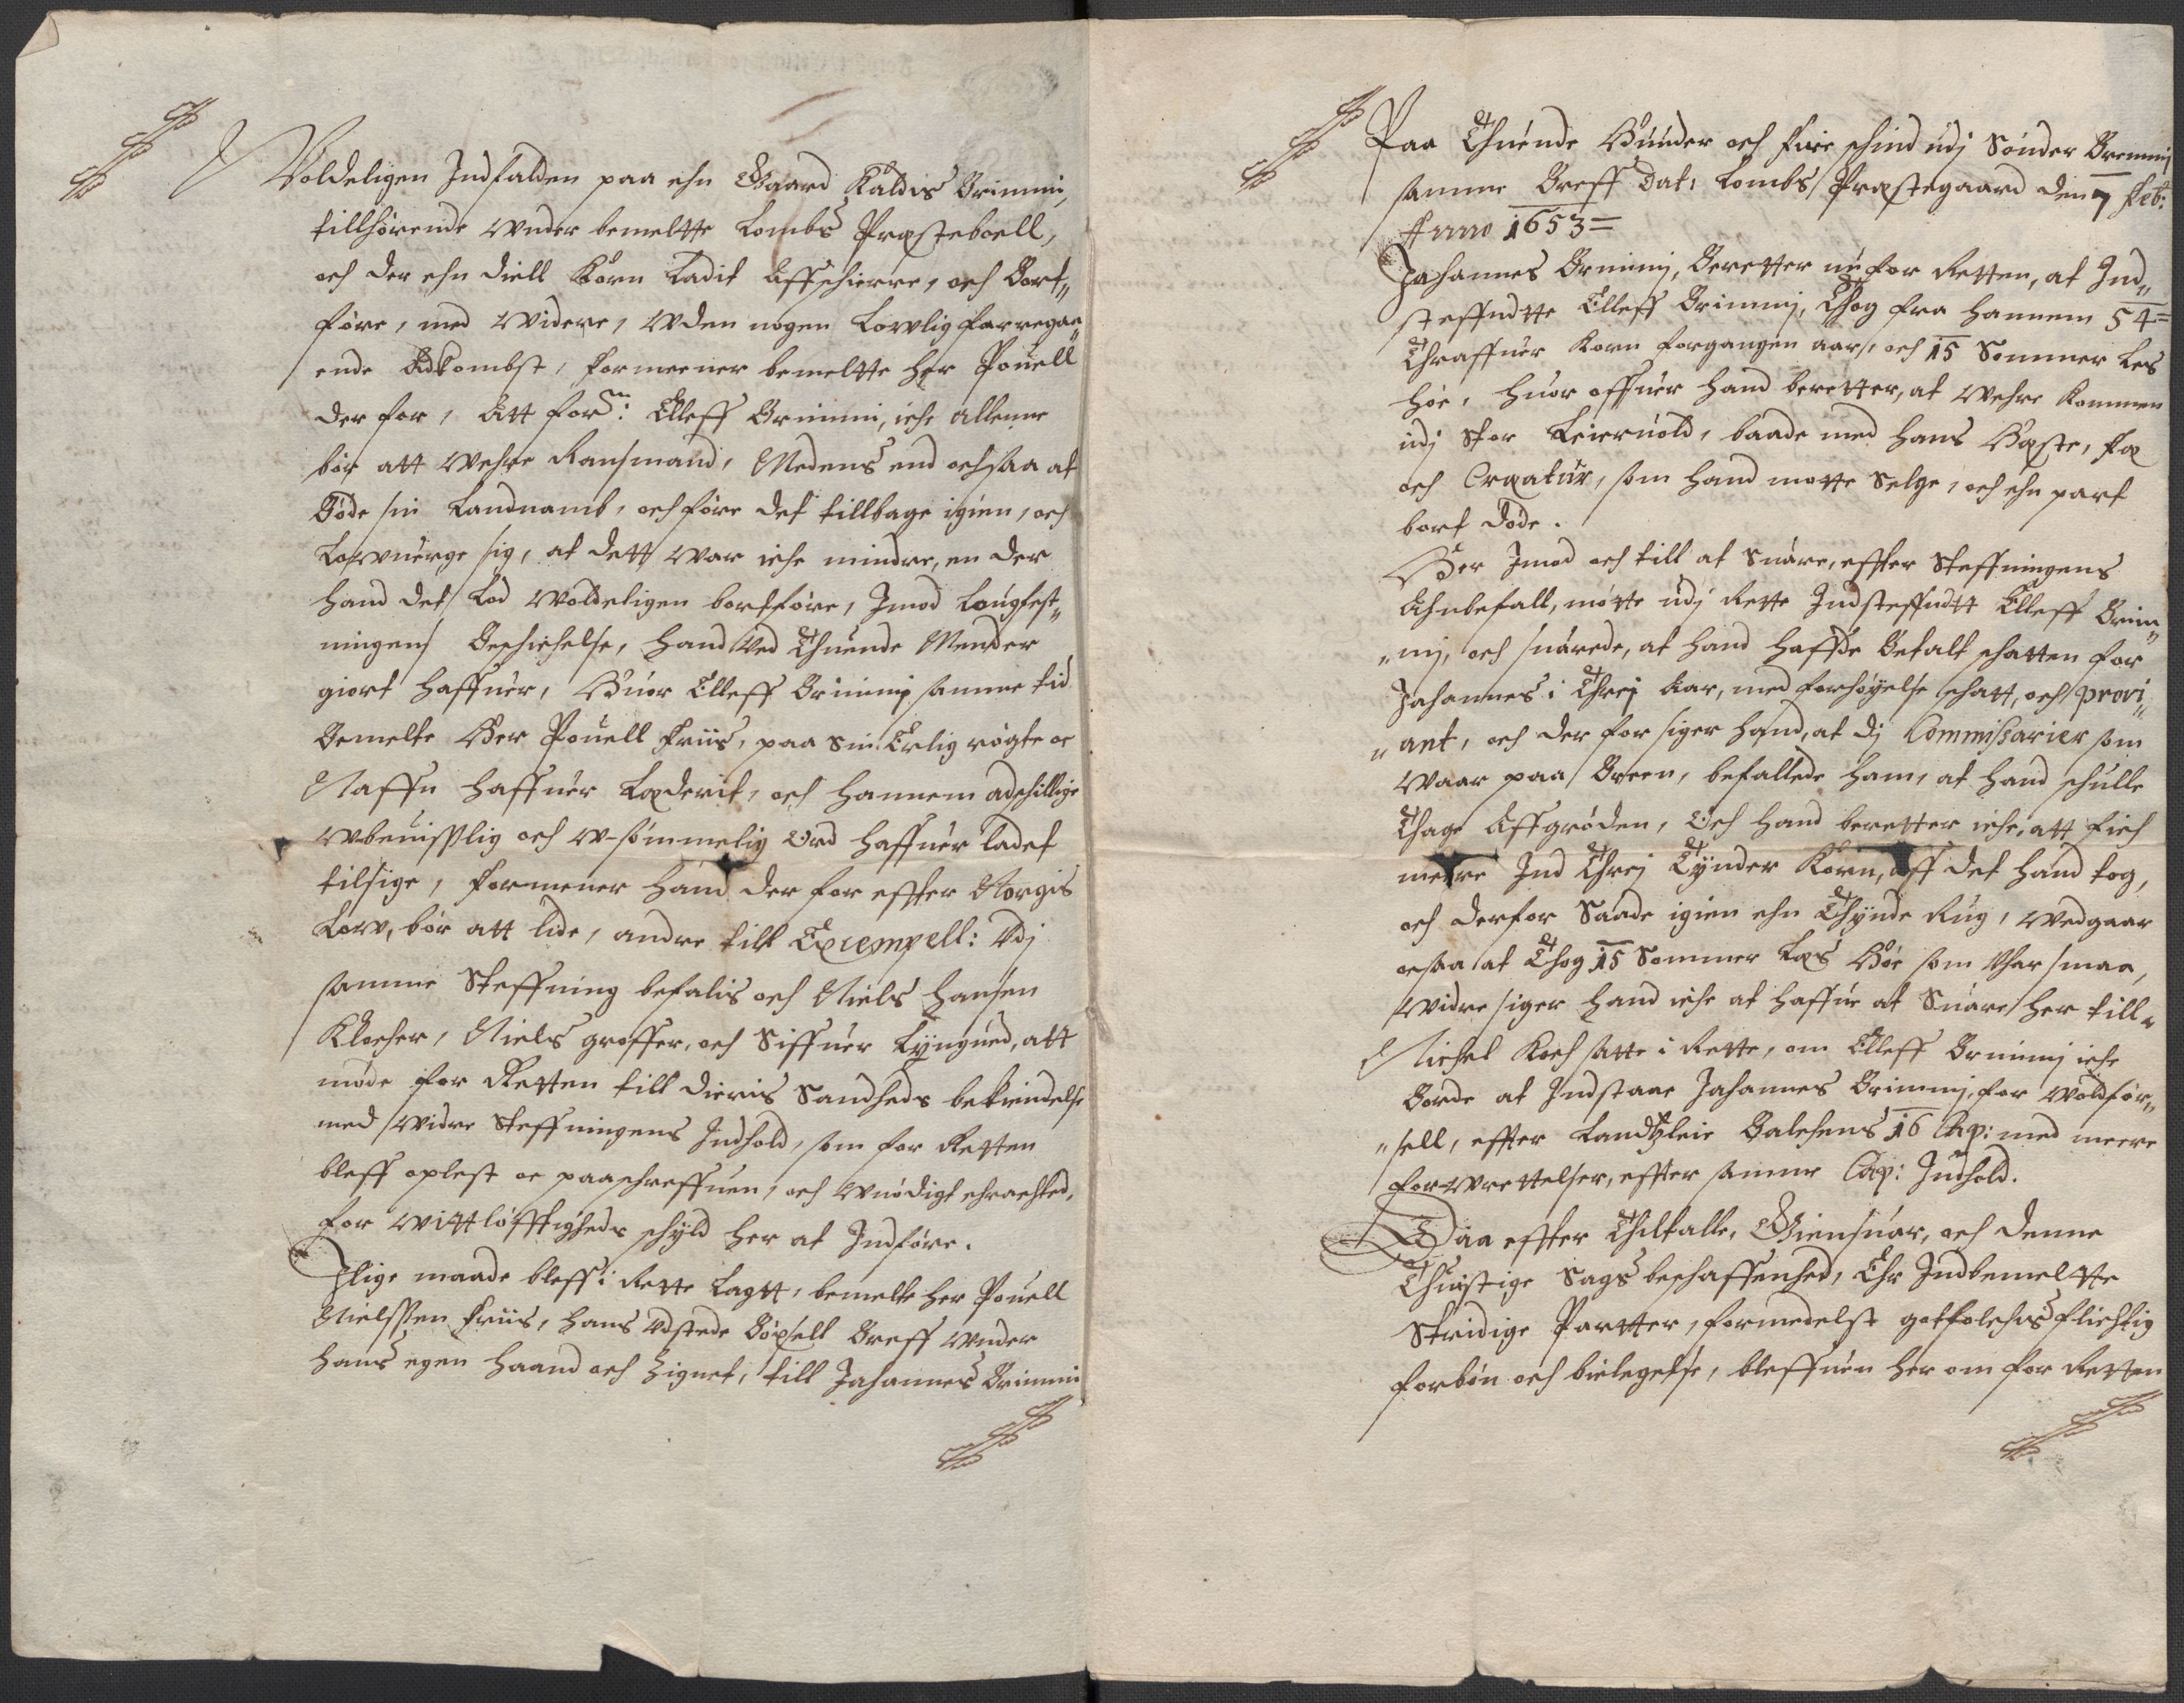 Voldeligen Indfalden paa ehn Gaard Kaldis Brimmi,
tillhørende wnder bemeltte Lombs Præsteboell,
och der ehn diell Korn ladit Affschierre, och Bort„
føre, med Widere, Wden nogen Lowlig forregaa„
ende Adkombst, formeener bemeltte her Pouell
der for, Att forne: Elleff Brimmi, iche allenne
bør att Wehre Ransmand, Medens end ochsaa at
Bøde sin Landnamb, och føre det tillbage igien, och
Lowuerge sig, at dett war iche mindre, en der
hand det lod Woldeligen bortføre, Imod Laugfest„
ningens Beschichelse, hand ved Thuende Mender
giort haffuer, Huor Elleff Brimmj samme tid
Bemelte Her Pouell Friis, paa sin Erlig røgte oc
Naffn haffuer Læderit, och hannem adschillige
Wbeuisslig och W-sømmelig Ord haffuer ladet
tilsige, formener hand der for effter Norgis
Low, bør att lide, andre till Exempell: Udj
samme Steffning befalis och Niels Hansen
Klocher, Niels groffer, och Siffuer Lyngued, att
møde for Retten till dieris Sandheds bekiendelse
med Widre Steffningens Indhold, som for Retten
bleff oplest oc paaschreffuen, och Wnødigt ehrachted,
for Wittløfftigheds schyld her at Indføre.
Ilige maade bleff i Rette Lagtt, bemelte her Pouell
Nielssen Friis, hans Udstede Bøxsell Breff Wnder
hans egen haand och Zignet, till Johannes Brimmi
Paa Thuende Hunder och fire schind udj Sønder Bremmj
samme Breff Dat: Lombs Præstegaard den 7 Feb:
Anno 1653=
Johannes Brimmj, Beretter nu for Retten, at Ind„
steffndtte Elleff Brimmj, Thog fra hannem 54=
Thraffuer Korn forgangen aars, och 15 Sommer Les
høe, huor offuer hand beretter, at Wehre kommen
udj stor Leieruold, baade med hans Hæste, Fæ
och Creatur, som hand motte Selge, och ehn part
bort døde.
Her Imod och till at Suare, effter Steffningens
Ahnbefall, møtte udj Rette Indsteffndtt Elleff Brim„
„mj, och suarede, at hand haffde Betalt schatten for
Johannes i Threj Aar, med forhøyelse schatt, och provi„
„ant, och der for siger hand, at dj Commissarier som
Waar paa Breen, befallede ham, at hand schulle
Thage Affgrøden, Och hand beretter iche, att fich
meere Ind Threj Tynder Korn, aff det hand tog,
och derfor Saade igien ehn Thynde Rug, Wedgaar
ocsaa at Thog 15 Sommer Læs Høe som Uhar smaa,
Widre siger hand iche at haffue at Suare her till.
Michel Koch satte i Rette, om Elleff Brimmj iche
Borde at Indstaae Johannes Brimmj, for Woldfør„
„sell, effter Landtzleie Balchens 16 Cap: med meere
forwrettelser, effter samme Cap: Indhold.
Daa effter Thiltalle, Giensuar, och denne
Thuistige Sags beschaffenhed, Ehr Indbemeltte
Stridige Partter, formedelst gotfolchis flichtig
forbøn och bielegelse, bleffuen her om for Retten